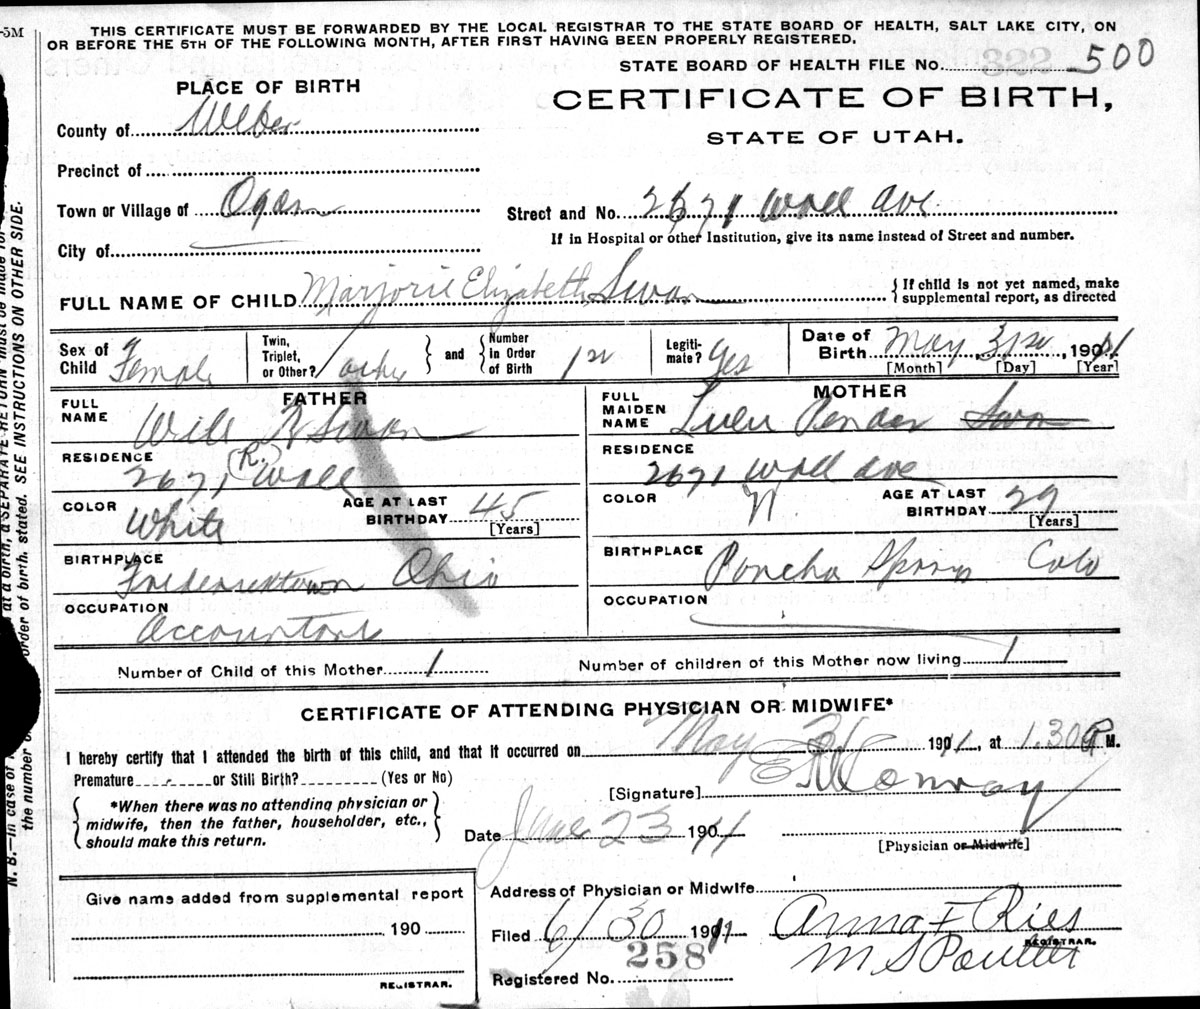 -5M
THIS CERTIFICATE MUST BE FORWARDED BY THE LOCAL REGISTRAR TO THE STATE BOARD OF HEALTH, SALT LAKE CITY, ON
OR BEFORE THE 5TH OF THE FOLLOWING MONTH, AFTER FIRST HAVING BEEN PROPERLY REGISTERED.
STATE BOARD OF HEALTH FILE No. 322 500
PLACE OF BIRTH
CERTIFICATE OF BIRTH,
STATE OF UTAH.
County of Weber
Precinct of
Town or Village of Ogden
Street and No. 2671 Wall Ave
If in Hospital or other Institution, give its name instead of Street and number.
City of
FULL NAME OF CHILD Marjorie Elizabeth Swan
If child is not yet named, make supplemental report, as directed
Sex of Child Female
Twin, Triplet, or Other?
and Number In Order of Birth 1st
Legitimate? Yes
Date of Birth May 31st, 1911
[Month] [Day] [Year]
FATHER
FULL NAME Will R Swan
RESIDENCE 2671 (R.) Wall
COLOR White
AGE AT LAST BIRTHDAY 45 [Years]
BIRTHPLACE Fredericktown Ohio
OCCUPATION Accountant
MOTHER
FULL MAIDEN NAME Lulu Pender Swan
RESIDENCE 2671 Wall Ave
COLOR W
AGE AT LAST BIRTHDAY 29 [Years]
BIRTHPLACE Poncha Springs Colo
OCCUPATION
Number of Child of this Mother 1
Number of children of this Mother now living 1
CERTIFICATE OF ATTENDING PHYSICIAN OR MIDWIFE*
I hereby certify that I attended the birth of this child, and that it occurred on May 31 1911, at 1.30 P M.
Premature or Still Birth? (Yes or No)
[Signature] Conroy
*When there was no attending physician or midwife, then the father, householder, etc., should make this return.
Date June 23 1911
[Physician or Midwife]
Give name added from supplemental report
190
REGISTRAR.
Address of Physician or Midwife
Filed 6/30 1911
Anna F Ries
M S Poulter
REGISTRAR.
Registered No. 258
N. B.—In case of
at a birth, a SEPARATE RETURN must be made for
the number
order of birth, stated. SEE INSTRUCTIONS ON OTHER SIDE.